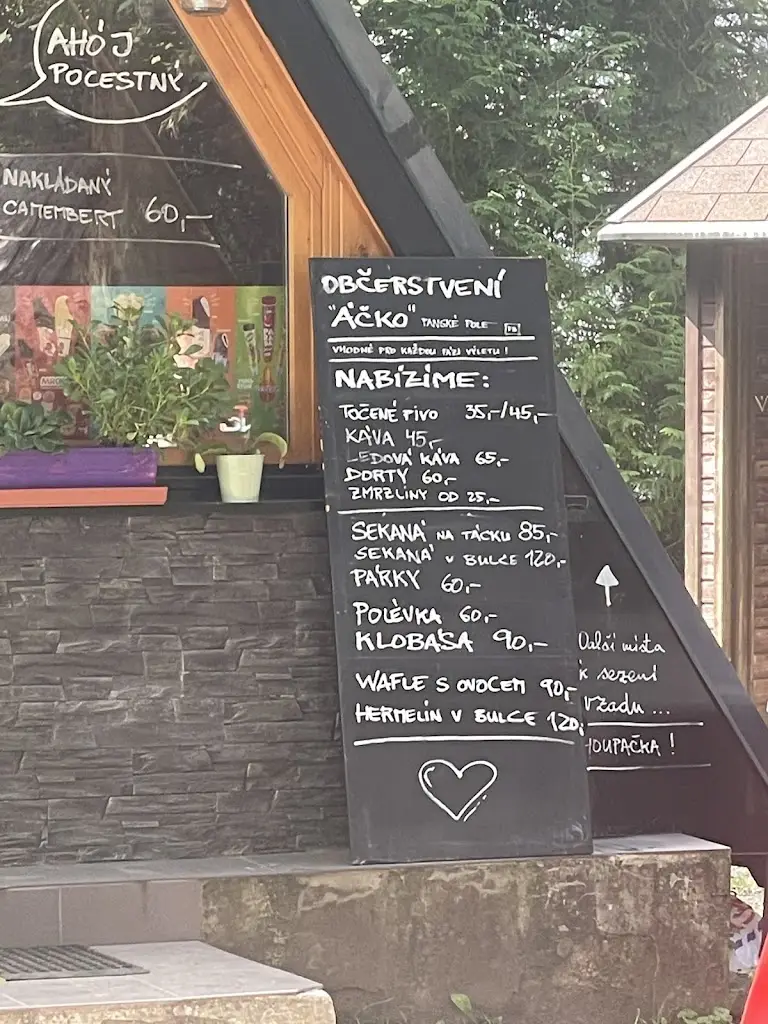 AHÓJ
POCESTNÝ
NAKLÁDANÝ
CAMEMBERT 60,-
OBČERSTVENÍ
"ÁČKO" PANSKÉ POLE
VHODNÉ PRO KAŽDOU FÁZI VÝLETU!
NABÍZÍME:
TOČENÉ PIVO 35,-/45,-
KÁVA 45,-
LEDOVÁ KÁVA 65,-
DORTY 60,-
ZMRZLINY OD 25,-
SEKANÁ NA TÁCKU 85,-
SEKANÁ V BULCE 120,-
PÁRKY 60,-
POLÉVKA 60,-
KLOBÁSA 90,-
WAFLE S OVOCEM 90,-
HERMELÍN V BULCE 120,-
Další místa
k sezení
vzadu ...
HOUPAČKA !